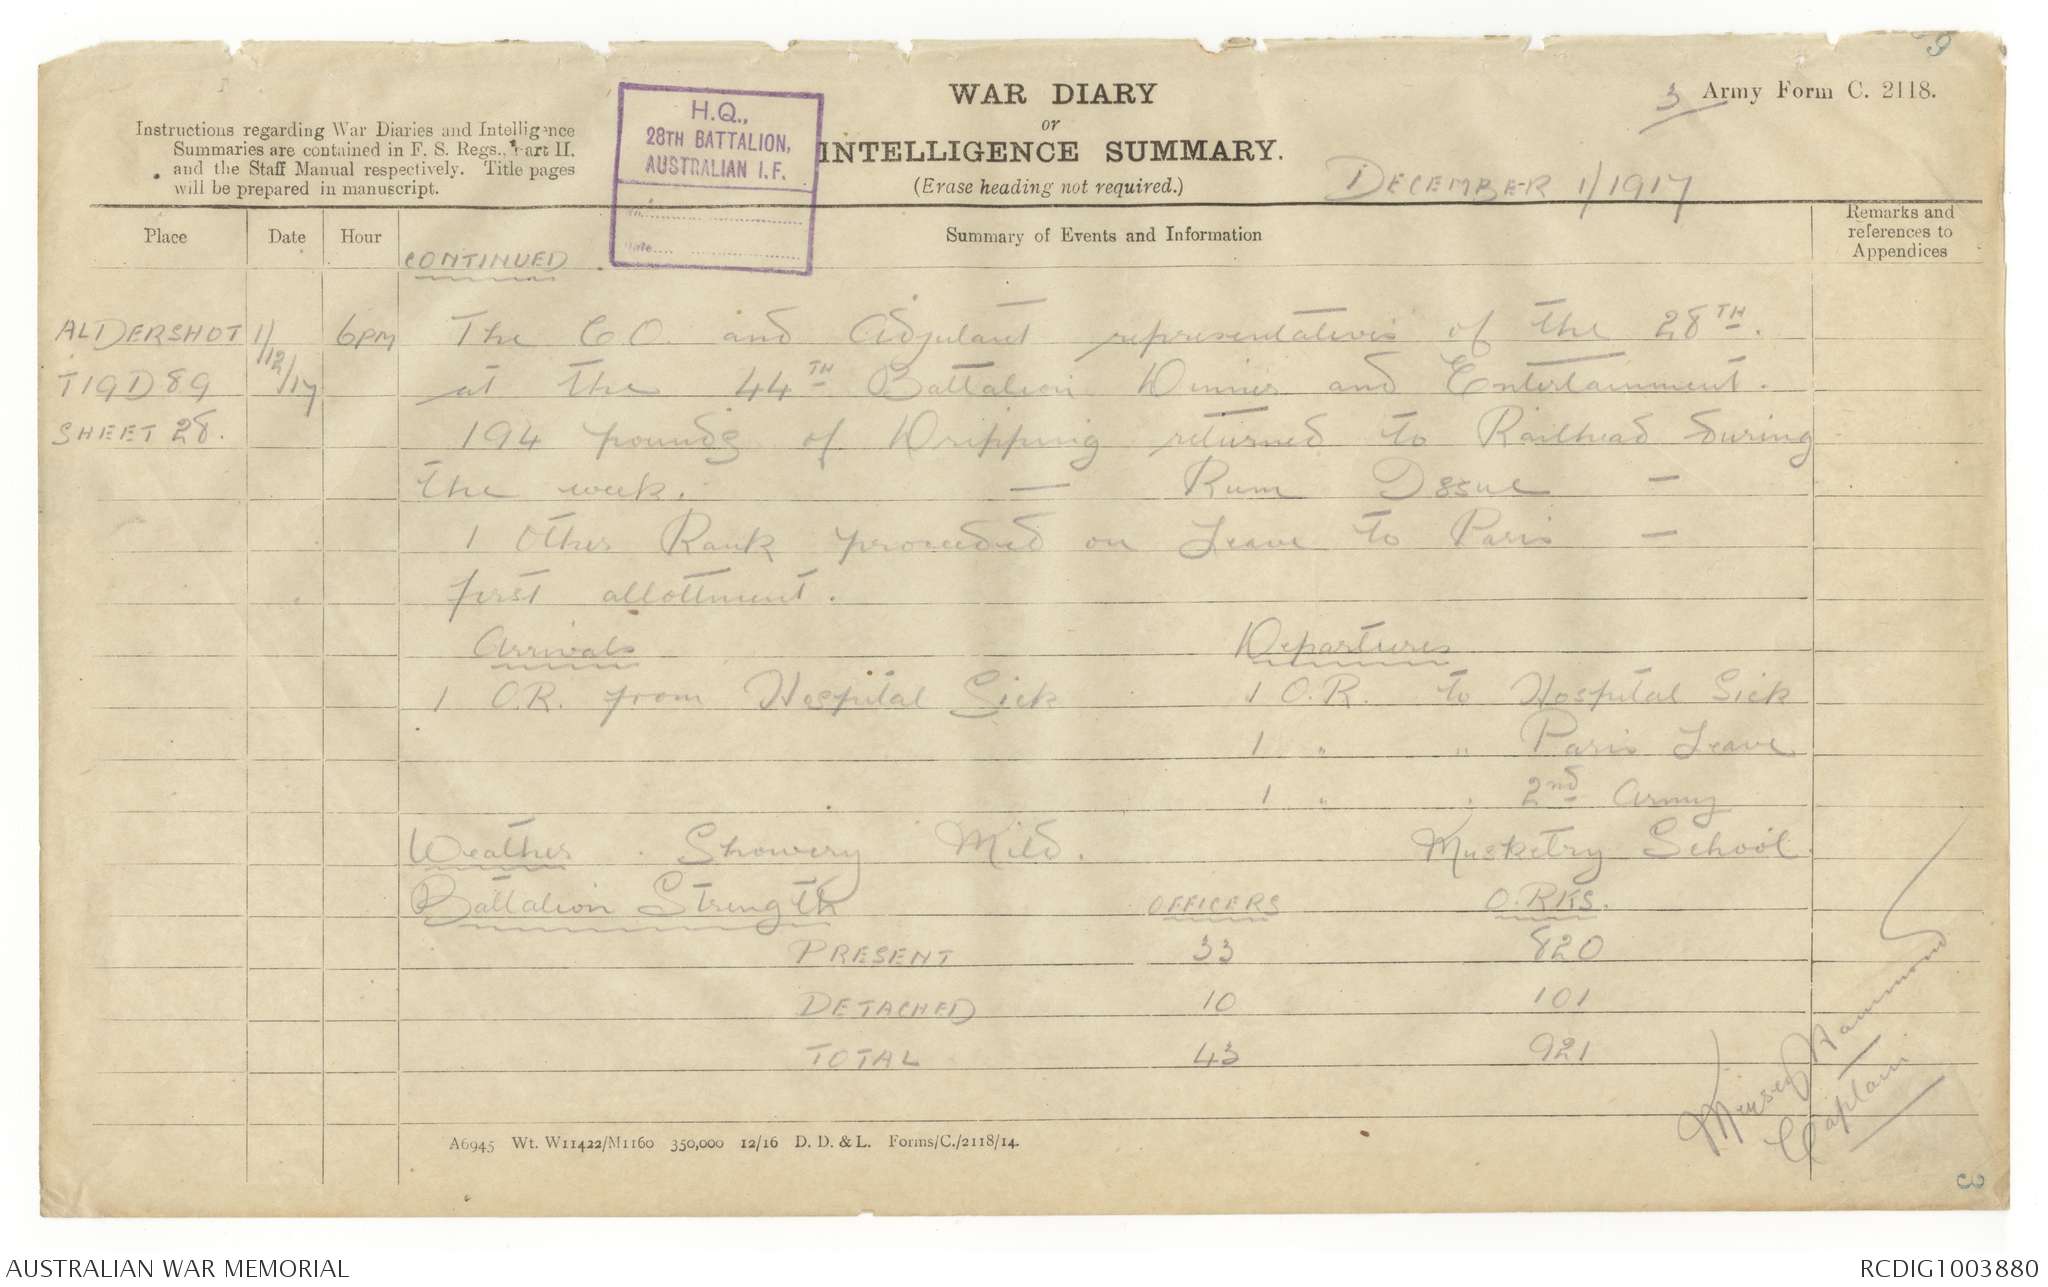 WAR DIARY
or
INTELLIGENCE SUMMARY.
(Erase heading not required.)
3 Army Form C. 2118.
Instructions regarding War Diaries and Intelligence
Summaries are contained in F. S. Regs., Part II.
and the Staff Manual respectively. Title pages
will be prepared in manuscript.
H.Q.,
28TH BATTALION,
AUSTRALIAN I.F.
No.
Date
DECEMBER 1/1917
Place Date Hour Summary of Events and Information Remarks and
references to
Appendices
CONTINUED
ALDERSHOT 1/12/17 6PM The CO. and Adjutant representatives of the 28TH.
T19D89 at the 44TH Battalion Dinner and Entertainment.
SHEET 28. 194 pounds of Dripping returned to Railhead during
the week. — Rum Issue —
1 Other Rank proceeded on Leave to Paris —
first allottment.
Arrivals Departures
1 O.R. from Hospital Sick 1 O.R. to Hospital Sick
1 " " Paris Leave
1 " " 2nd Army
Weather . Showery Mild. Musketry School.
Battalion Strength OFFICERS O.RKS.
PRESENT 33 820
DETACHED 10 101
TOTAL 43 921
Hammond
Captain
A6945 Wt. W11422/M1160 350,000 12/16 D. D. & L. Forms/C./2118/14.
3
AUSTRALIAN WAR MEMORIAL RCDIG1003880